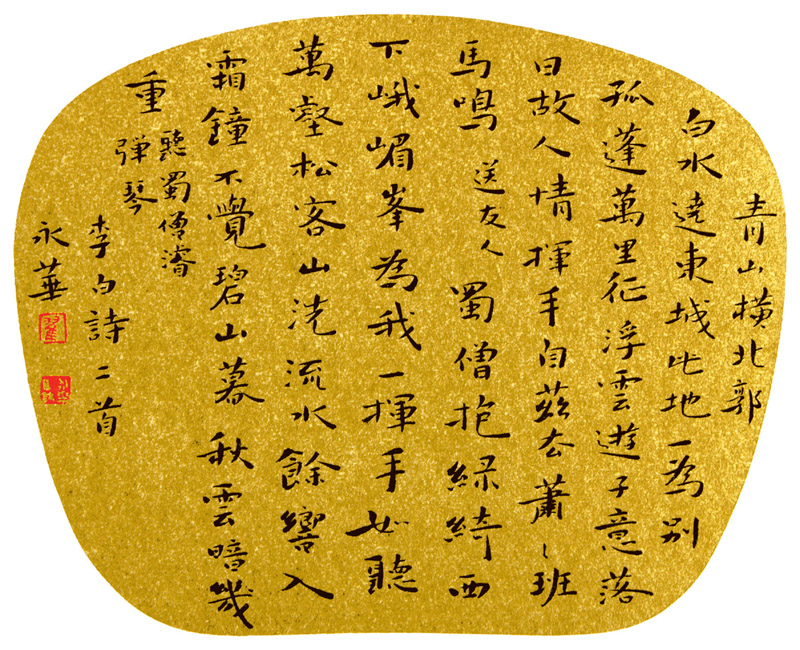 青山橫北郭
白水遶東城此地一為別
孤蓬萬里征浮雲遊子意落
日故人情揮手自茲去蕭〻班
馬鳴 送友人 蜀僧抱綠綺西
下峨嵋峯為我一揮手如聽
萬壑松客山洗流水餘響入
霜鐘不覺碧山暮秋雲暗幾
重 聽蜀僧濬
彈琴
李白詩二首
永華